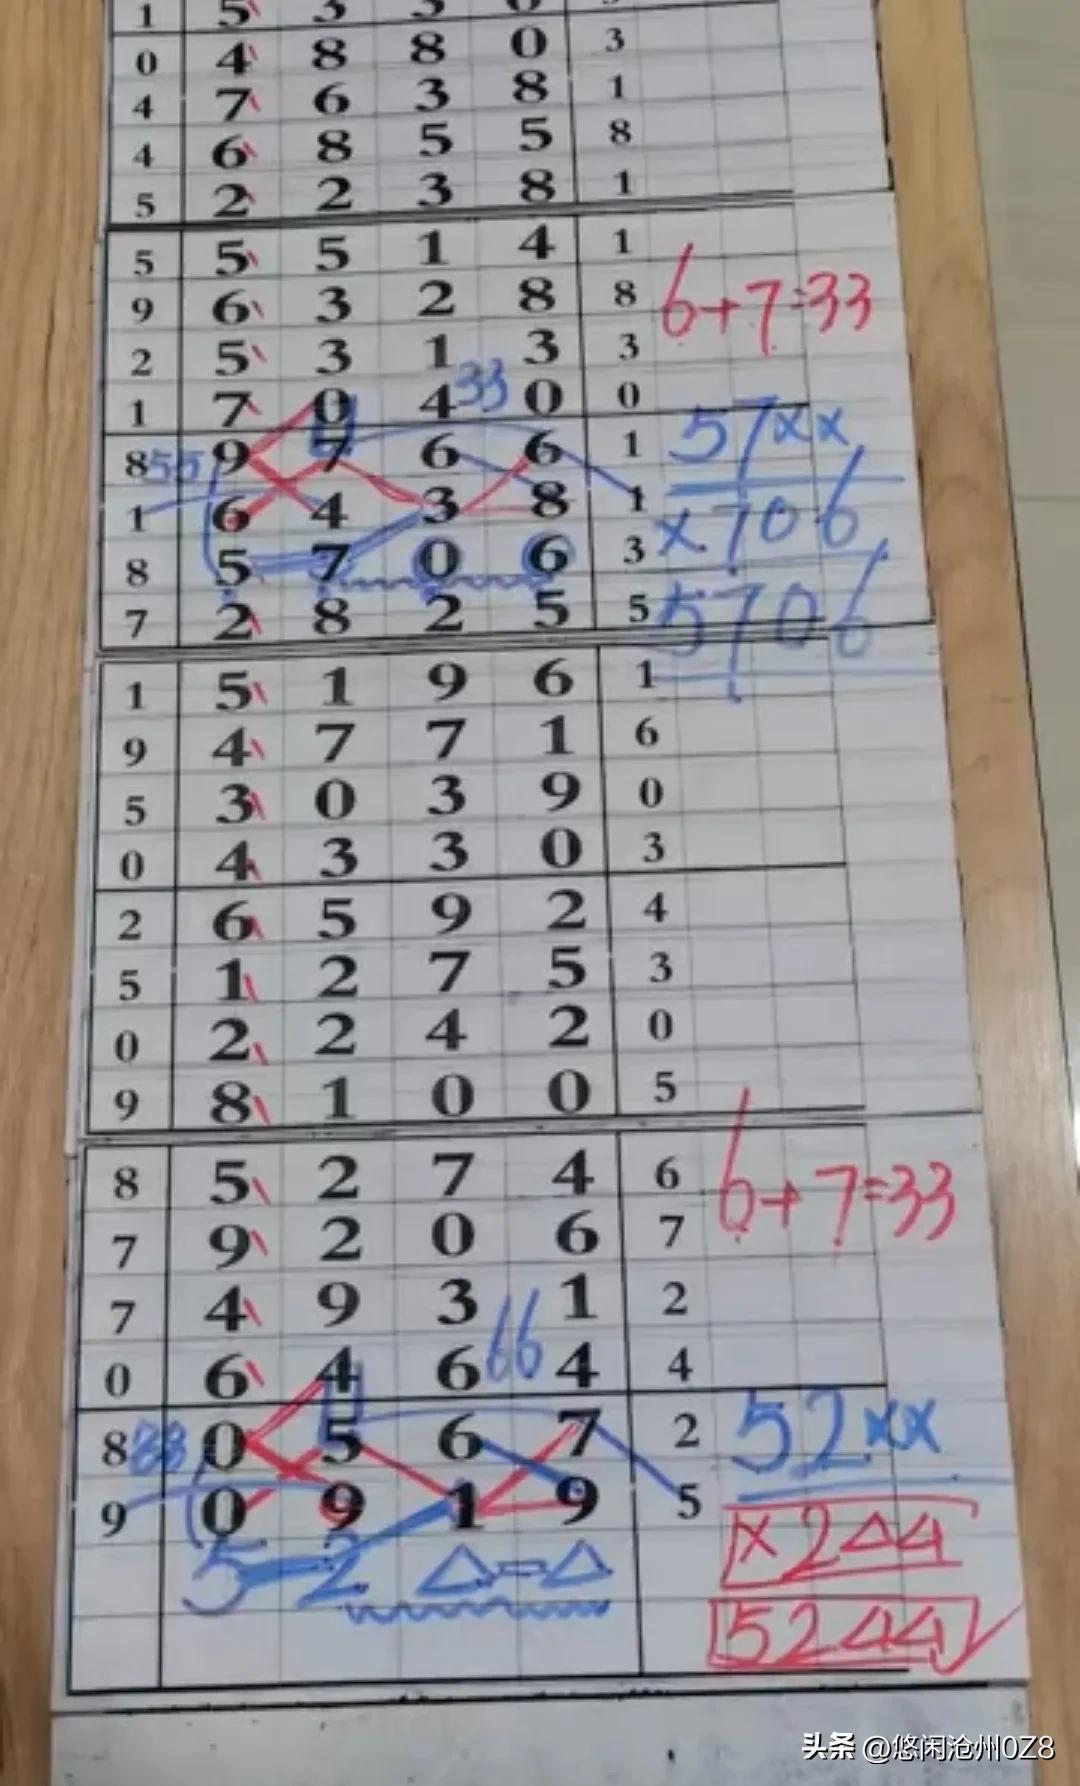 1 5 3 3
0 4 8 8 0 3
4 7 6 3 8 1
4 6 8 5 5 8
5 2 2 3 8 1
5 5 5 1 4 1
9 6 3 2 8 8
6+7=33
2 5 3 1 3 3
33
1 7 0 4 0 0
57××
8 55 9 7 6 6 1
1 6 4 3 8 1
×706
8 5 7 0 6 3
7 2 8 2 5 5
5706
1 5 1 9 6 1
9 4 7 7 1 6
5 3 0 3 9 0
0 4 3 3 0 3
2 6 5 9 2 4
5 1 2 7 5 3
0 2 2 4 2 0
9 8 1 0 0 5
8 5 2 7 4 6
6+7=33
7 9 2 0 6 7
7 4 9 3 1 2
66
0 6 4 6 4 4
52××
8 88 0 5 6 7 2
9 0 9 1 9 5
×2△△
5-2 △-△
52△△
头条 @悠闲沧州0Z8